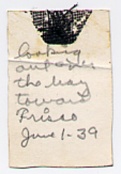 looking
out over
the bay
toward
Frisco
June 1-39